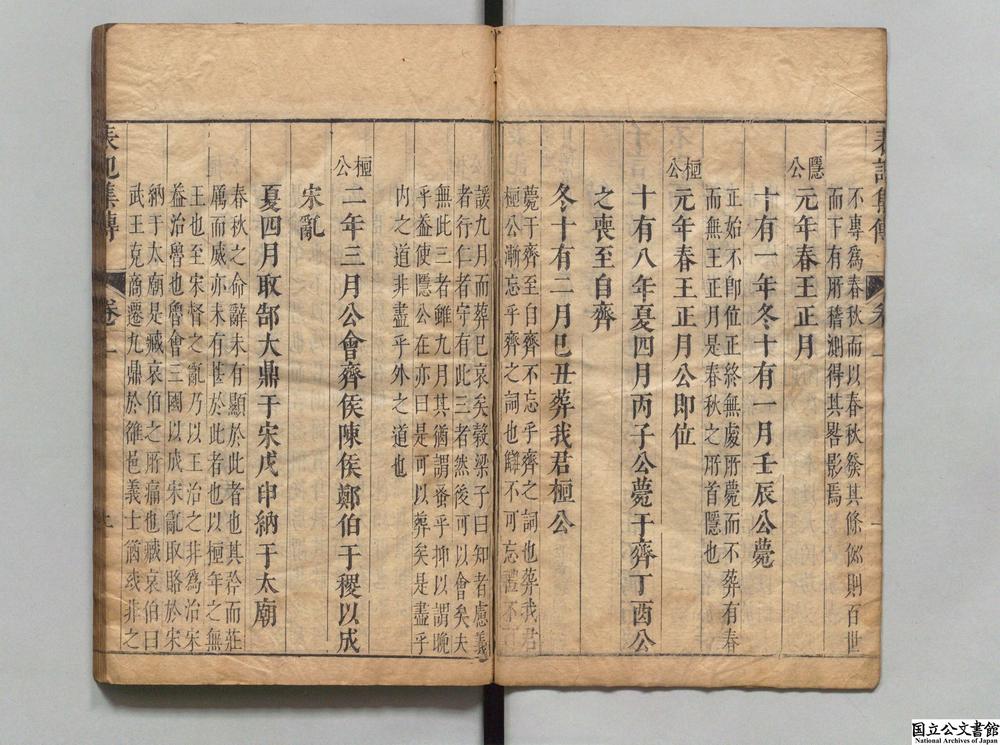 表記集傳
卷一
不專為春秋而以春秋發其條例則百世
而下有所稽測得其畧影焉
隱公
元年春王正月
十有一年冬十有一月壬辰公薨
正始不卽位正終無處所薨而不葬有春
而無王正月是春秋之所首隱也
桓公
元年春王正月公即位
十有八年夏四月丙子公薨于齊丁酉公
之喪至自齊
冬十有二月巳丑葬我君桓公
薨于齊至自齊不忘乎齊之詞也葬我君
桓公漸忘乎齊之詞也讎不可忘禮不可
誤九月而葬巳哀矣穀梁子曰知者慮義
者行仁者守有此三者然後可以會矣夫
無此三者雖九月其猶謂蚤乎抑以謂晚
乎葢使隱公在亦曰是可以葬矣是盡乎
内之道非盡乎外之道也
桓公
二年三月公會齊侯陳侯鄭伯于稷以成
宋亂
夏四月取郜大鼎于宋戊申納于太廟
春秋之命辭未有顯於此者也其矜而莊
厲而威亦未有甚於此者也以桓年之無
王也至宋督之亂乃以王治之非為治宋
益治魯也魯會三國以成宋亂取賂於宋
納于太廟是臧哀伯之所痛也臧哀伯曰
武王克商遷九鼎於雒邑義士猶或非之
表記集傳
卷一
国立公文書館
National Archives of Japan